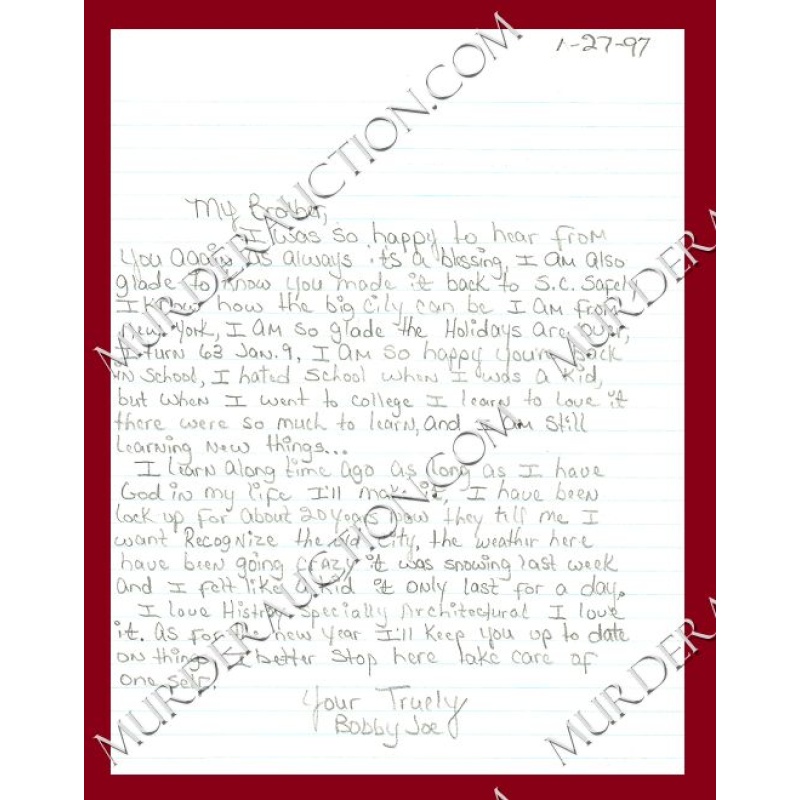 1-27-97
My Brother,
I was so happy to hear from
you again as always its a blessing, I am also
glade to know you made it back to S.C. Safely
I know how the big city can be I am from
New York, I am so glade the Holidays are over,
I turn 63 Jan. 9, I am so happy your back
in School, I hated School when I was a kid,
but when I went to college I learn to love it
there were so much to learn, and I am still
learning new things...
I learn along time ago as long as I have
God in my life I'll make it, I have been
lock up for about 20 years now they till me I
want Recognize the old city, the weather here
have been going crazy it was snowing last week
and I felt like a kid it only last for a day.
I love Histroy Specially Architectural I love
it. As for the new year I'll keep you up to date
on things I better stop here take care of
one self.
Your Truely
Bobby Joe
MURDERAUCTION.COM
MURDERAUCTION.COM
MURDERA
MURDERA